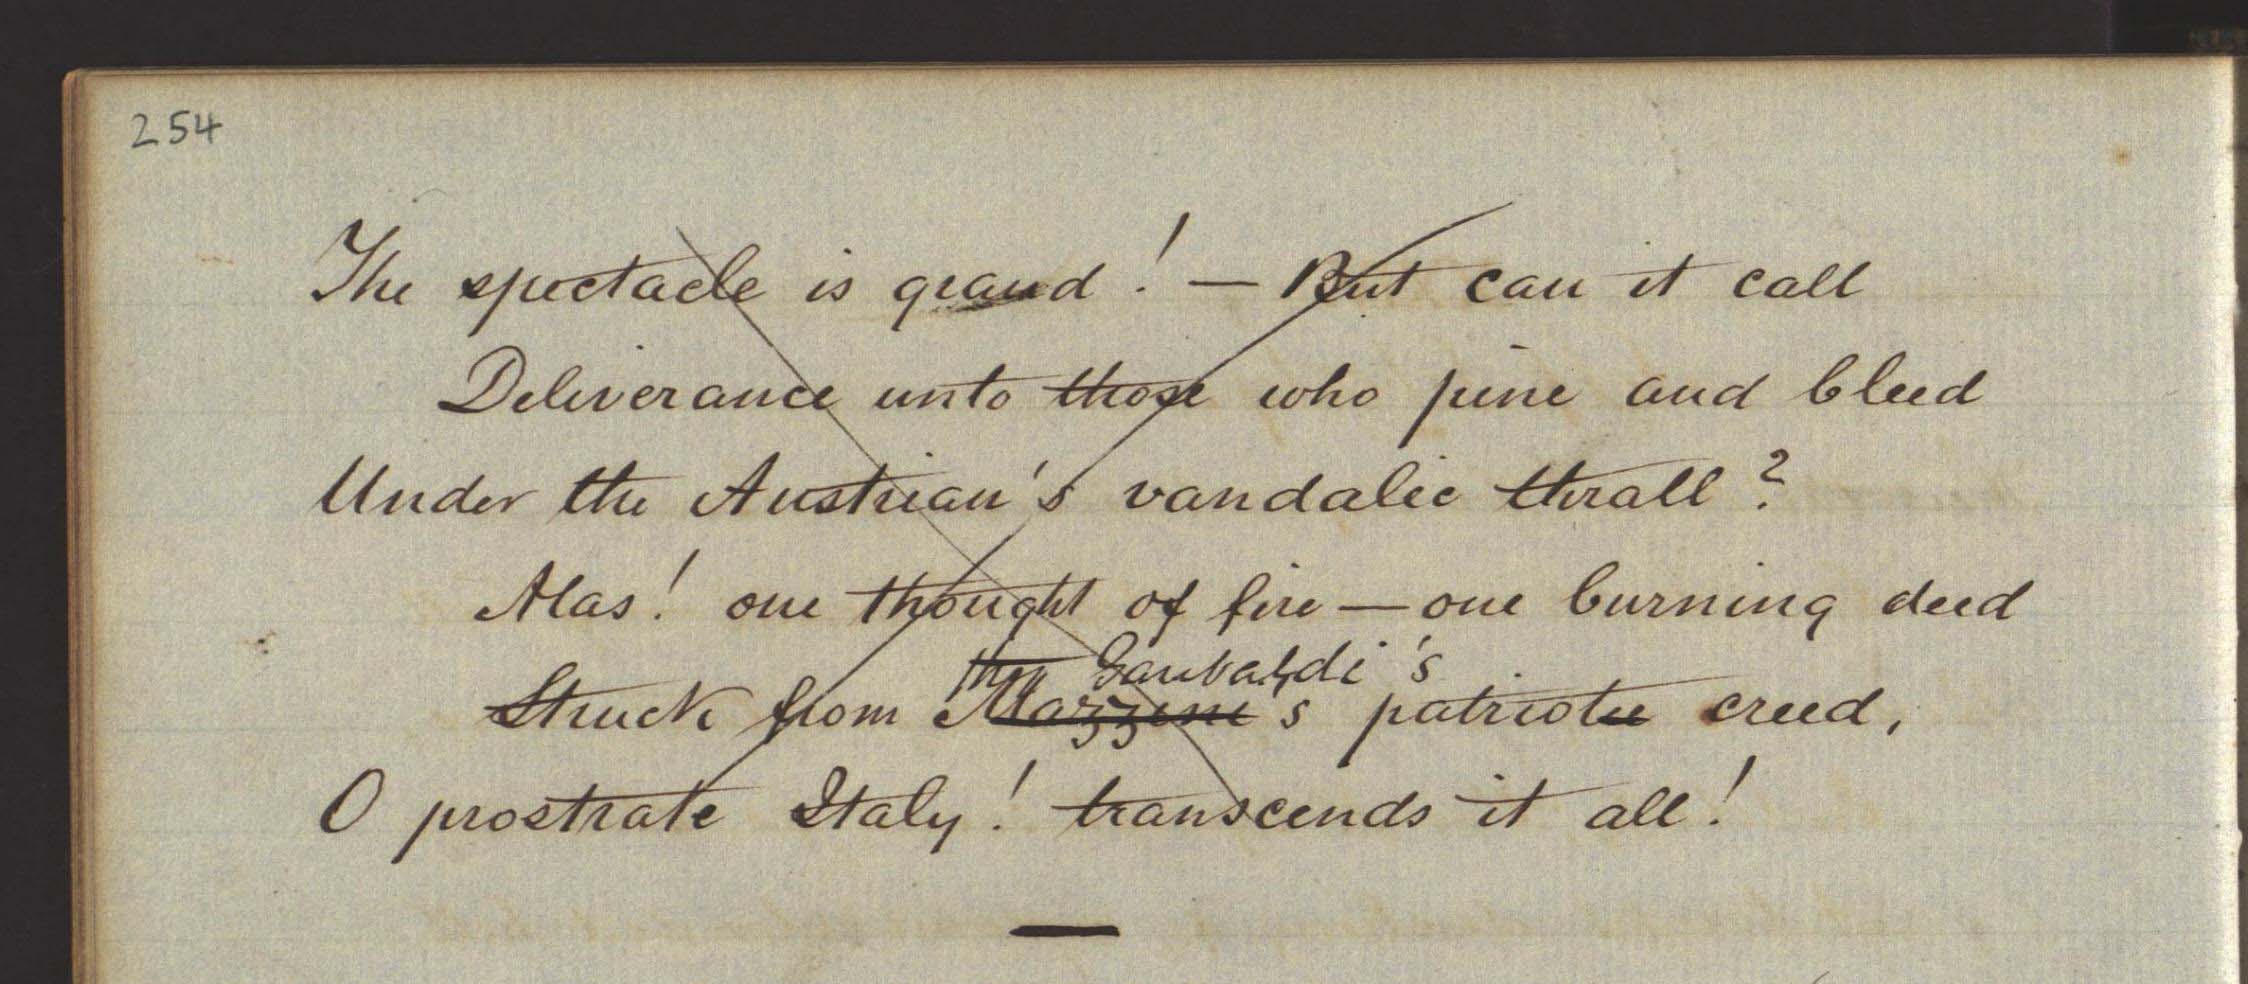 254
The spectacle is grand! — But can it call
Deliverance unto those who pine and bleed
Under the Austrian's vandalic thrall?
Alas! one thought of fire — one burning deed
thy Garibaldi's
Struck from Mazzini's patriotic creed,
O prostrate Italy! transcends it all!